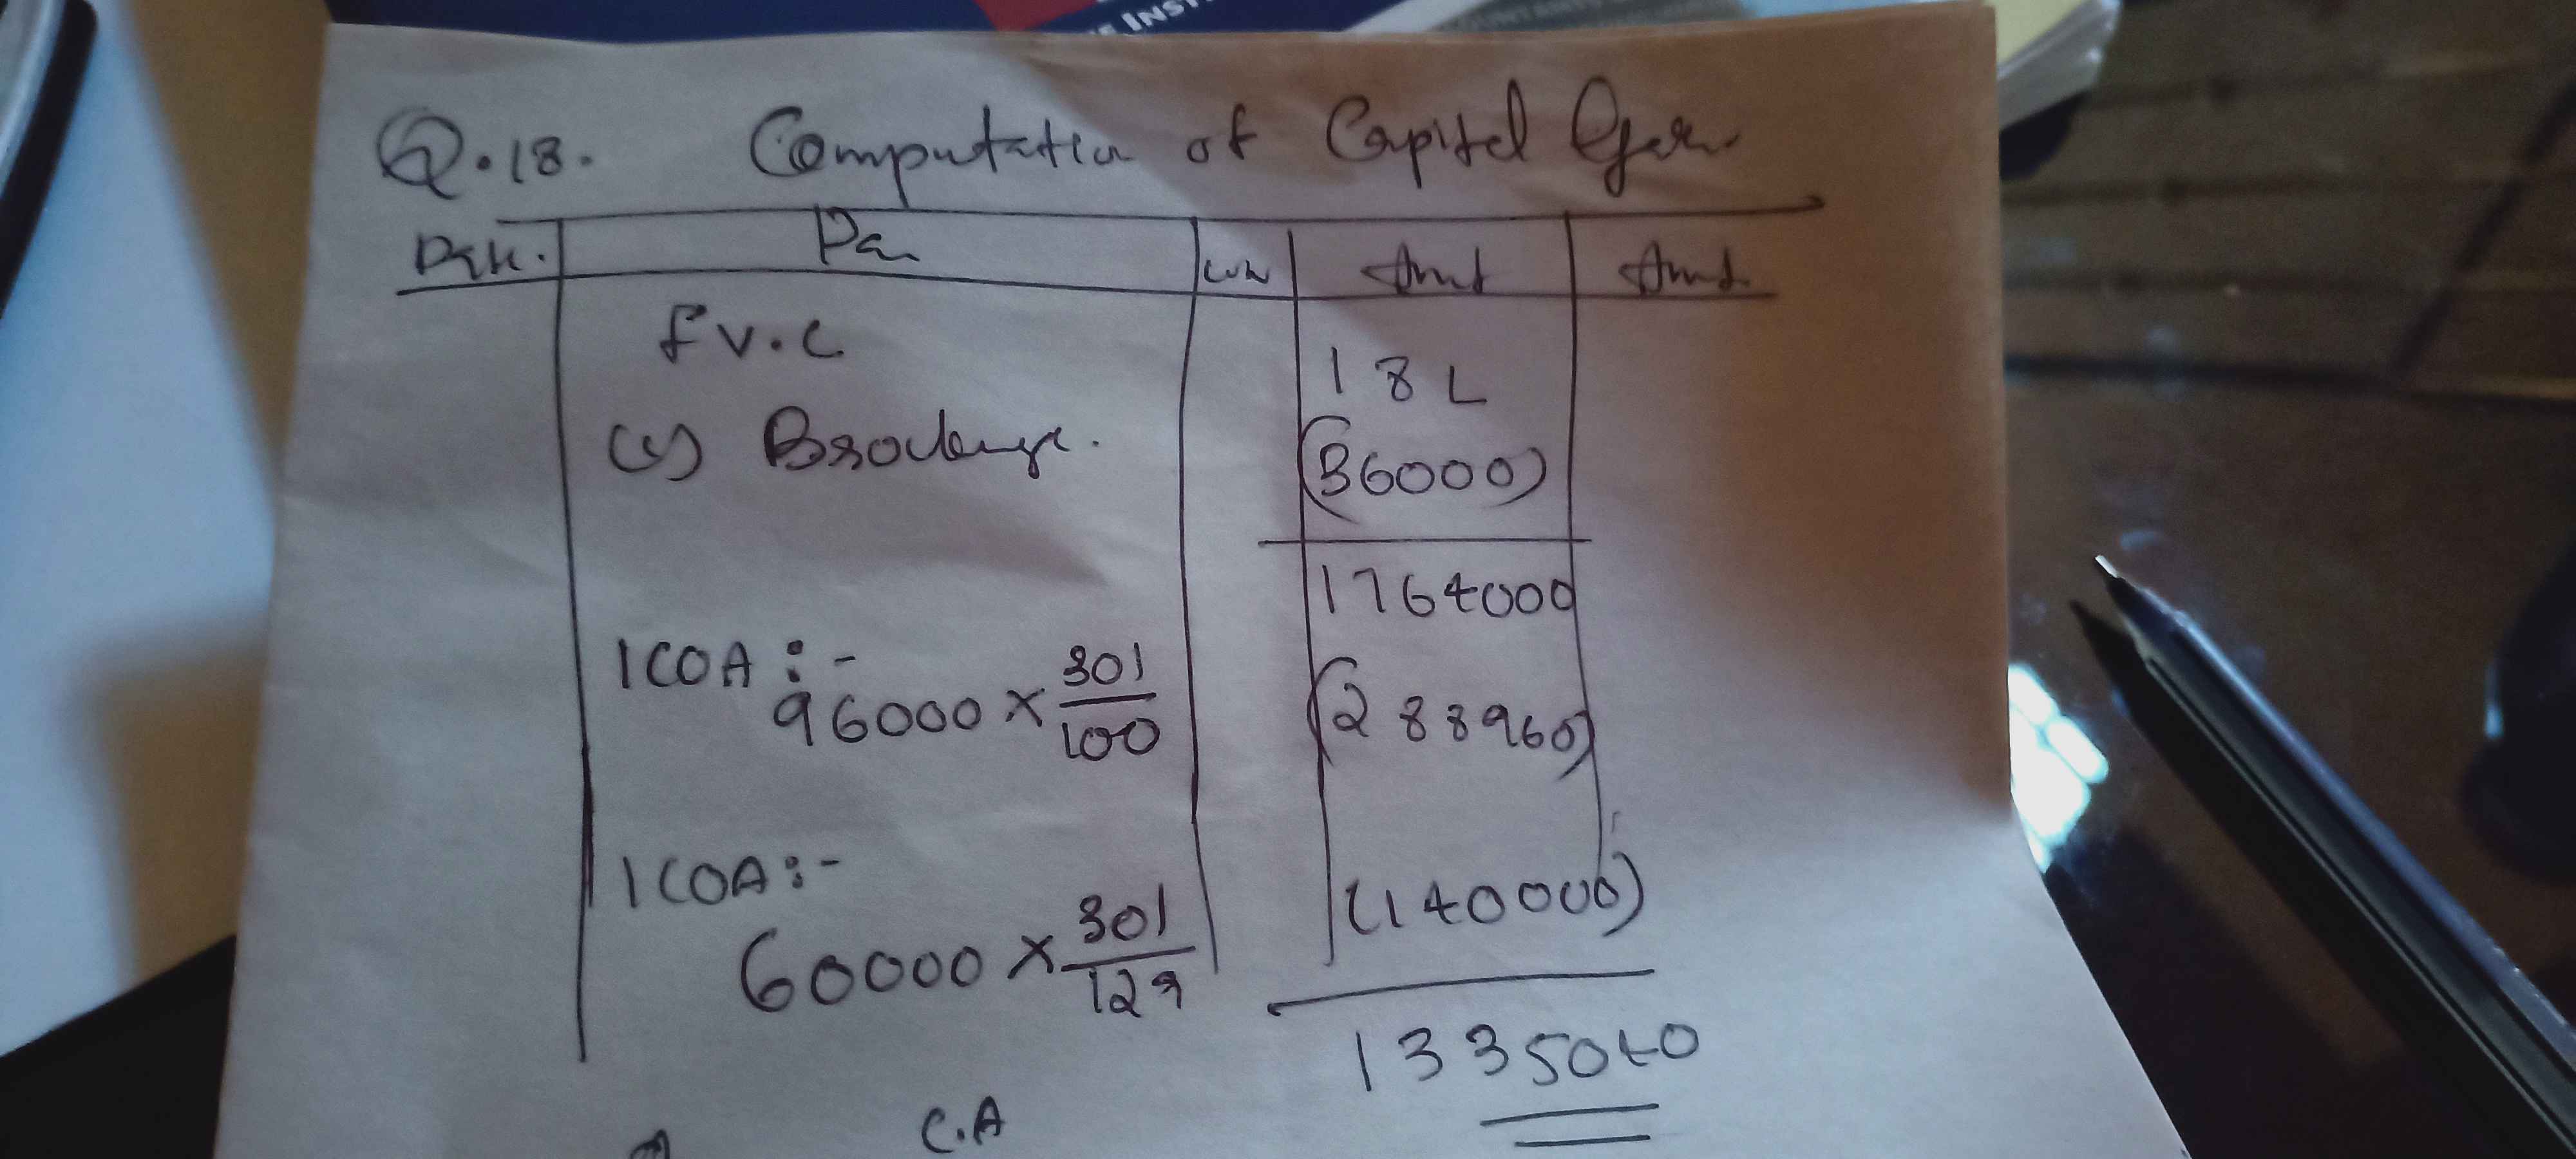 INST
Q.18. Computation of Capital Gain
Par WN Amt Amt.
F.V.C
18L
(-) Brokerage.
(36000)
1764000
ICOA :-
96000 × 301/100 (288960)
ICOA :-
60000 × 301/129 (140000)
1335040
C.A